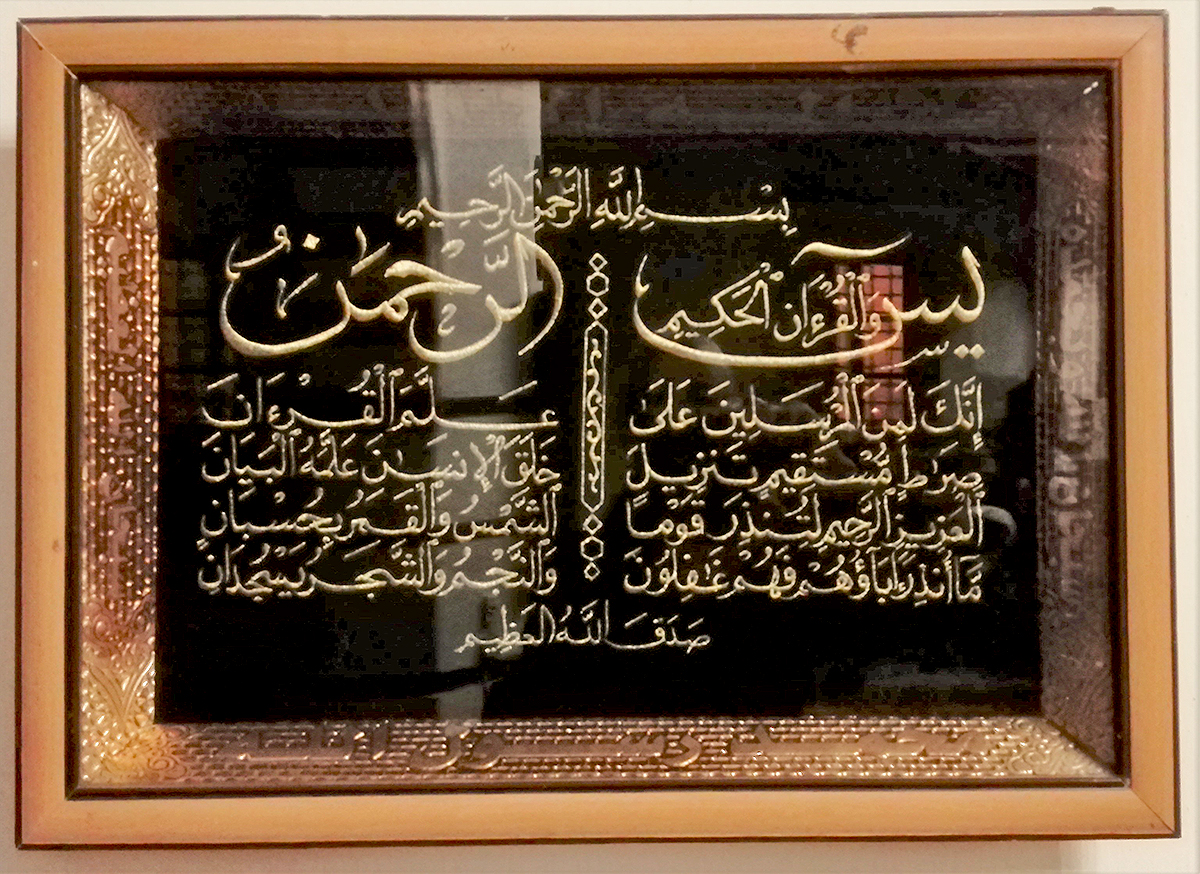 بِسْمِ اللَّهِ الرَّحْمٰنِ الرَّحِيمِ
يسٓ
وَٱلْقُرْءَانِ ٱلْحَكِيمِ
إِنَّكَ لَمِنَ ٱلْمُرْسَلِينَ عَلَىٰ
صِرَٰطٍ مُّسْتَقِيمٍ تَنزِيلَ
ٱلْعَزِيزِ ٱلرَّحِيمِ لِتُنذِرَ قَوْمًا
مَّا أُنذِرَ ءَابَآؤُهُمْ فَهُمْ غَٰفِلُونَ
الرَّحْمَٰنُ
عَلَّمَ ٱلْقُرْءَانَ
خَلَقَ ٱلْإِنسَٰنَ عَلَّمَهُ ٱلْبَيَانَ
ٱلشَّمْسُ وَٱلْقَمَرُ بِحُسْبَانٍ
وَٱلنَّجْمُ وَٱلشَّجَرُ يَسْجُدَانِ
صَدَقَ اللَّهُ العَظِيم
محمد رسول الله